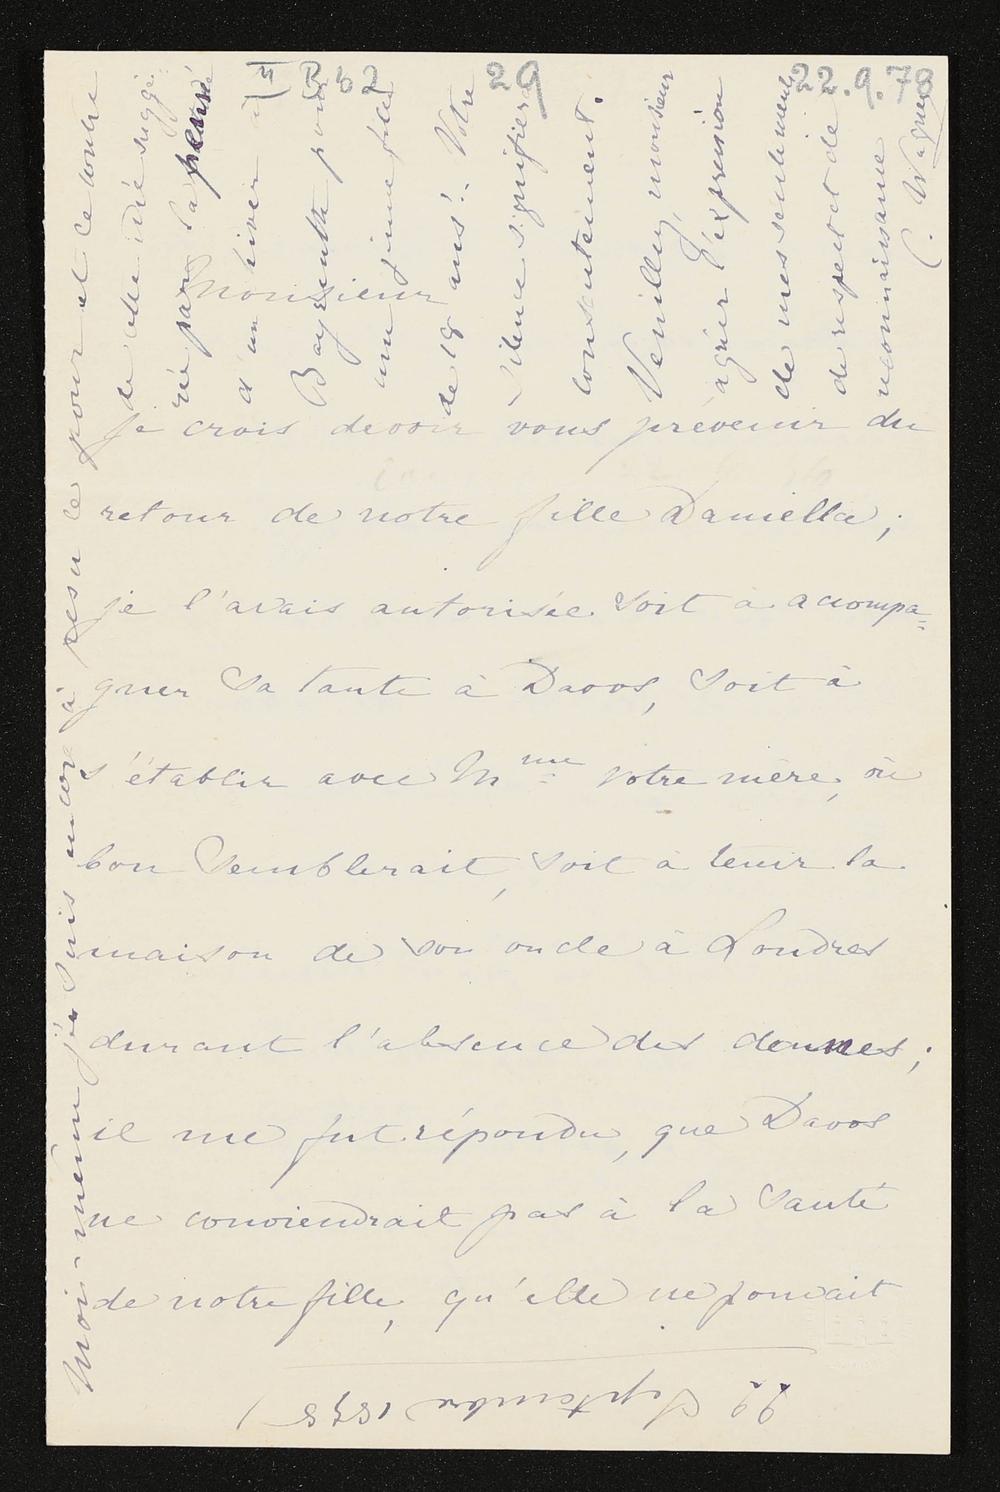 29
22.9.78
Monsieur
je crois devoir vous prévenir du
retour de notre fille Daniella;
je l'avais autorisée soit à accompa=
gner sa tante à Davos, soit à
s'établir avec Mme votre mère, où
bon semblerait, soit à tenir la
maison de son oncle à Londres
durant l'absence des dames;
il me fut répondu, que Davos
ne conviendrait pas à la santé
de notre fille, qu'elle ne pouvait
22 Septembre 1878)
Moi-même j'en suis encore à peser le pour et le contre
de cette idée suggé=
rée par la pensée
d'un hiver à
Bayreuth pour
une jeune fille
de 18 ans. Votre
silence signifiera
consentement.
Veuillez, monsieur
agréer l'expression
de mes sentiments
de respect et de
reconnaissance
C. Wagner